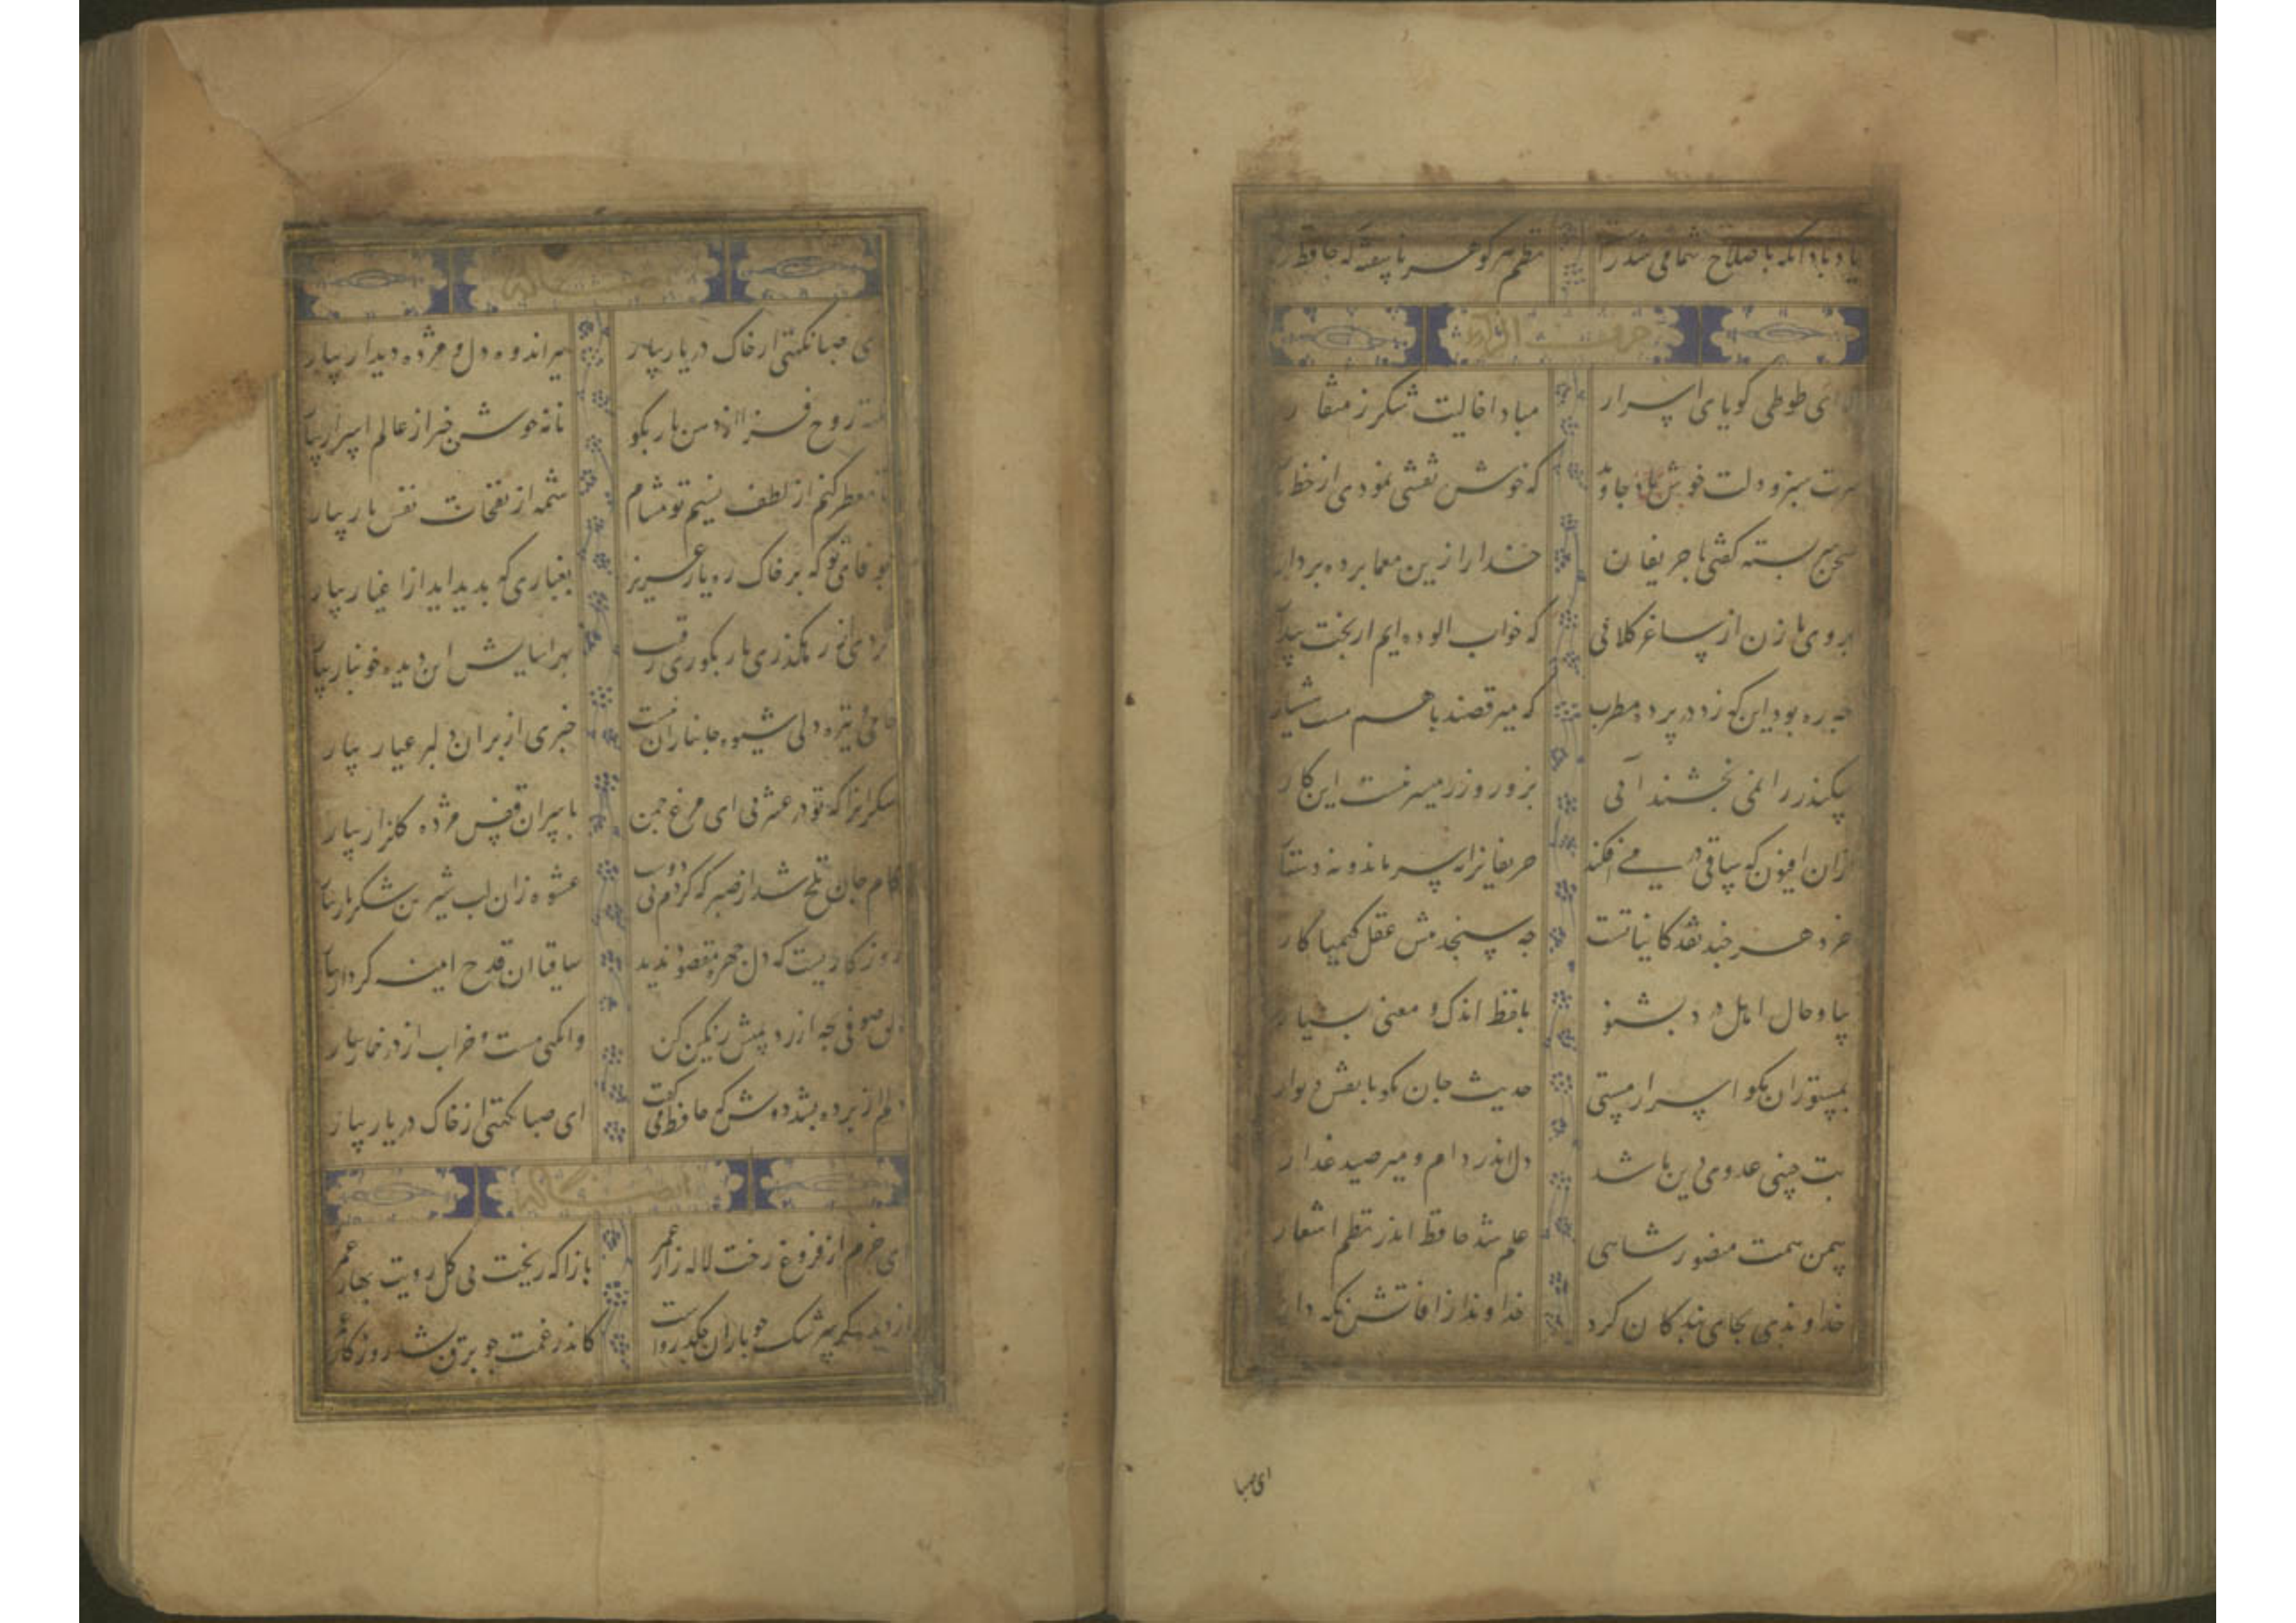 یاد باد انکه باصلاح شما می شد راست نظم هر کوهر ناسفته که حافظ را
حرف الراء
ای طوطی کویای اسرار مبادا خالیت شکر ز منقار
سرت سبز و دلت خوش باد جاوید که خوش نقشی نمودی از خط یار
سخن سربسته کفتی با حریفان خدا را زین معما پرده بردار
بروی ما زن از ساغر کلابی که خواب الوده ایم ای بخت بیدار
چه ره بود این که زد در پرده مطرب که میرقصند باهم مست هشیار
سکندر را نمی بخشند آبی بزور و زر میسر نیست این کار
ازان افیون که ساقی در می افکند حریفانرا نه سر ماند و نه دستار
خرد هر چند نقد کایناتست چه سنجد پیش عقل کیمیا کار
بیا و حال اهل درد بشنو بلفظ اندک و معنی بسیار
بمستوران مکو اسرار مستی حدیث جان مکو با نقش دیوار
بت چینی عدوی دین ما شد دل اندر دام و میر صید غدار
بیمن همت منصور شاهی علم شد حافظ اندر نظم اشعار
خداوندی بجای بندکان کرد خداوندا ز افاتش نکه دار
ای صبا
ای صبا نکهتی از خاک در یار بیار ببر اندوه دل و مژده دیدار بیار
نکته روح فزا از دهن یار بکو نامه خوش خبر از عالم اسرار بیار
تا معطر کنم از لطف نسیم تو مشام شمه از نفحات نفس یار بیار
بوفای تو که بر خاک ره یار عزیز بغباری که بدید اید از اغیار بیار
کردی از رهکذر یار بکوری رقیب بهر اسایش این دیده خونبار بیار
خامی و تیره دلی شیوه جانبازان نیست خبری از بر ان دلبر عیار بیار
شکر انرا که تو در عشرتی ای مرغ چمن باسیران قفس مژده کلزار بیار
کام جان تلخ شد از صبر که کردم بی دوست عشوه زان لب شیرین شکربار بیار
روزکاریست که دل چهره مقصود ندید ساقیا ان قدح اینه کردار بیار
دلق صوفی بچه ارزد بمیش رنکین کن وانکهی مست و خراب از در خمار بیار
دلم از پرده بشد دوش که حافظ می کفت ای صبا نکهتی از خاک در یار بیار
ای خرم از فروغ رخت لاله زار عمر بازا که ریخت بی کل رویت بهار عمر
از دیده کر سرشک چو باران چکد رواست کاندر غمت چو برق بشد روزکار عمر